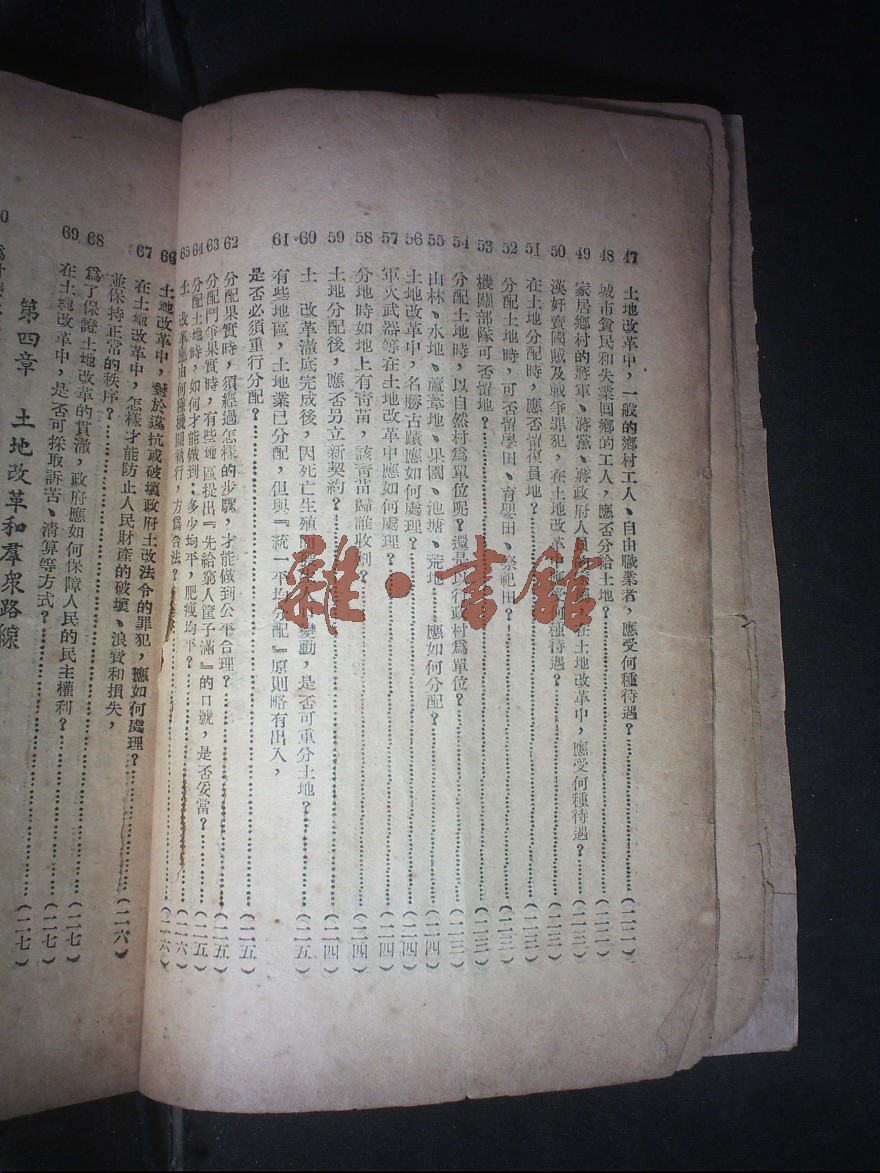 47 土地改革中，一般的鄉村工人、自由職業者，應受何種待遇？……（二二）
48 城市貧民和失業回鄉的工人，應否分給土地？……（二二）
49 家居鄉村的蔣軍、蔣黨、蔣政府人員的 在土地改革中，應受何種待遇？……（二三）
50 漢奸賣國賊及戰爭罪犯，在土地改革中應受何種待遇？……（二三）
51 在土地分配時，應否留復員地？……（二三）
52 分配土地時，可否留學田、育嬰田、祭祀田？……（二三）
53 機關部隊可否留地？……（二三）
54 分配土地時，以自然村爲單位呢？還是以行政村爲單位？……（二三）
55 山林、水地、蘆葦地、果園、池塘、荒地……應如何分配？……（二四）
56 土地改革中，名勝古蹟應如何處理？……（二四）
57 軍火武器等在土地改革中應如何處理？……（二四）
58 分地時如地上有靑苗，該靑苗歸誰收割？……（二四）
59 土地分配後，應否另立新契約？……（二四）
60 土 改革澈底完成後，因死亡生殖 變動，是否可重分土地？……（二五）
61 有些地區，土地業已分配，但與『統一平均分配』原則略有出入，
是否必須重行分配？……（二五）
62 分配果實時，須經過怎樣的步驟，才能做到公平合理？……（二五）
63 分配鬥爭果實時，有些地區提出『先給窮人筐子滿』的口號，是否妥當？……（二五）
64 分配土地時，如何才能做到：多少均平，肥瘦均平？……（二六）
65 土 改革應由何種機關執行，方爲合法？……（二六）
66 土地改革中，對於違抗或破壞政府土改法令的罪犯，應如何處理？
67 在土地改革中，怎樣才能防止人民財產的破壞、浪費和損失，
並保持正常的秩序？……（二六）
68 爲了保證土地改革的貫澈，政府應如何保障人民的民主權利？……（二七）
69 在土地改革中，是否可採取訴苦、淸算等方式？……（二七）
第四章 土地改革和羣衆路線……（二七）
雜·書館